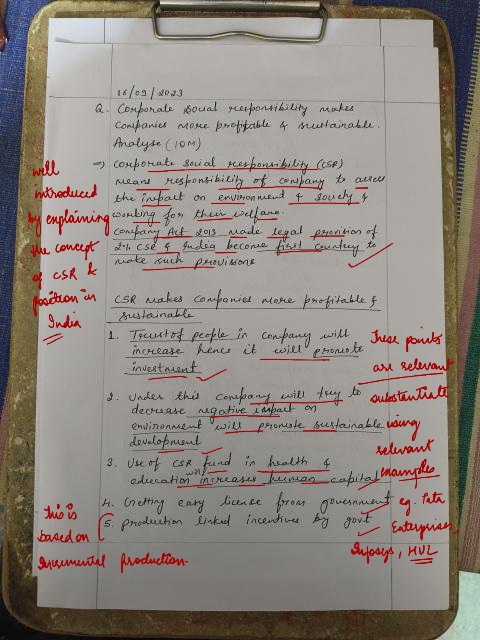 16/09/2023
Q. Corporate social responsibility makes
Companies more profitable & sustainable.
Analyse (10M)
→ Corporate social responsibility (CSR)
means responsibility of company to assess
the impact on environment & society &
working for their welfare.
Company Act 2013 made legal provision of
2% CSR & India become first country to
make such provisions
well
introduced
by explaining
the concept
of CSR &
position in
India
CSR makes Companies more profitable &
sustainable
1. Trust of people in company will
increase hence it will promote
investment
2. Under this company will try to
decrease negative impact on
environment will promote sustainable
development
3. Use of CSR fund in health &
education will increases human capital
4. Getting easy license from government
5. production linked incentives by govt
These points
are relevant
substantiate
using
relevant
examples
eg. Tata
Enterprises,
Infosys, HUL
This is
based on
Incremental production.